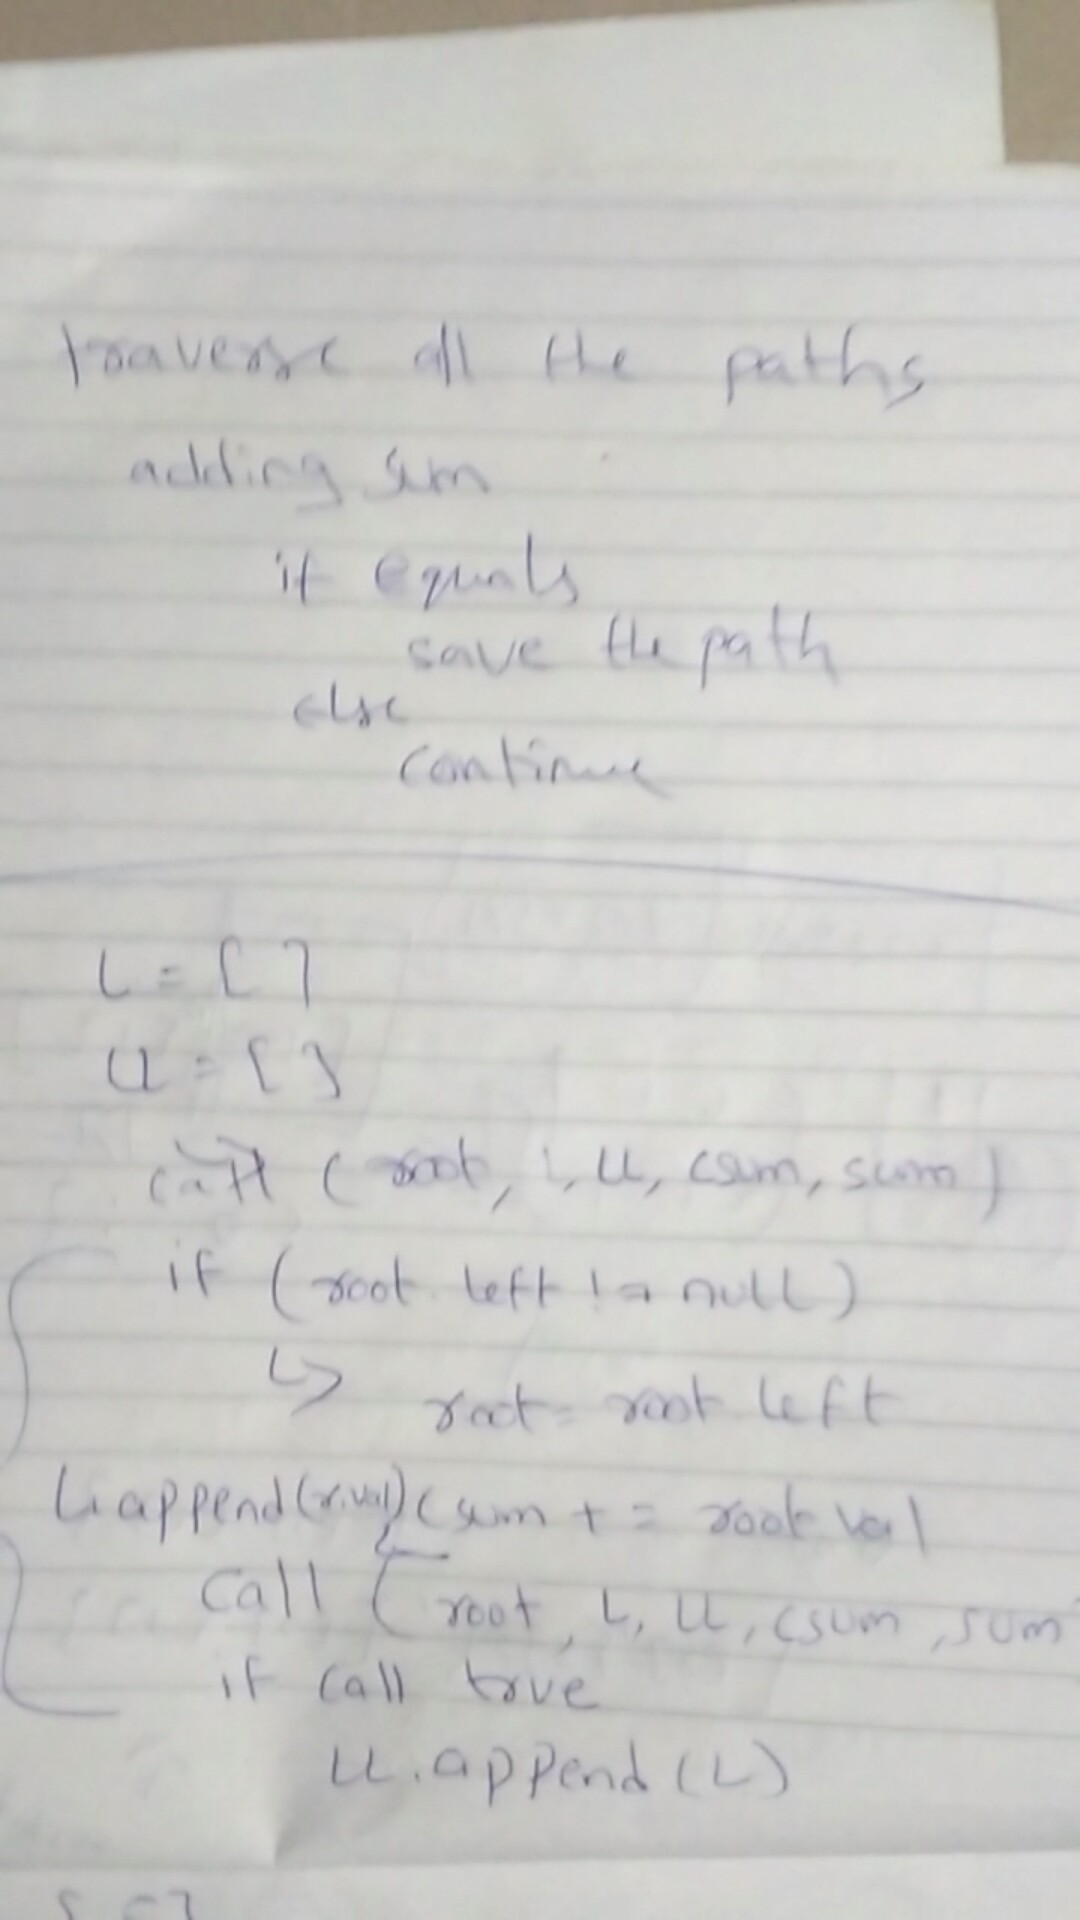 traverse all the paths
adding sum
if equals
save the path
else
continue
L = [ ]
LL = [ ]
call (root, L, LL, csum, sum)
if (root.left != null)
↳ root = root.left
L.append(r.val) csum += root.val
call (root, L, LL, csum, sum
if call true
LL.append(L)